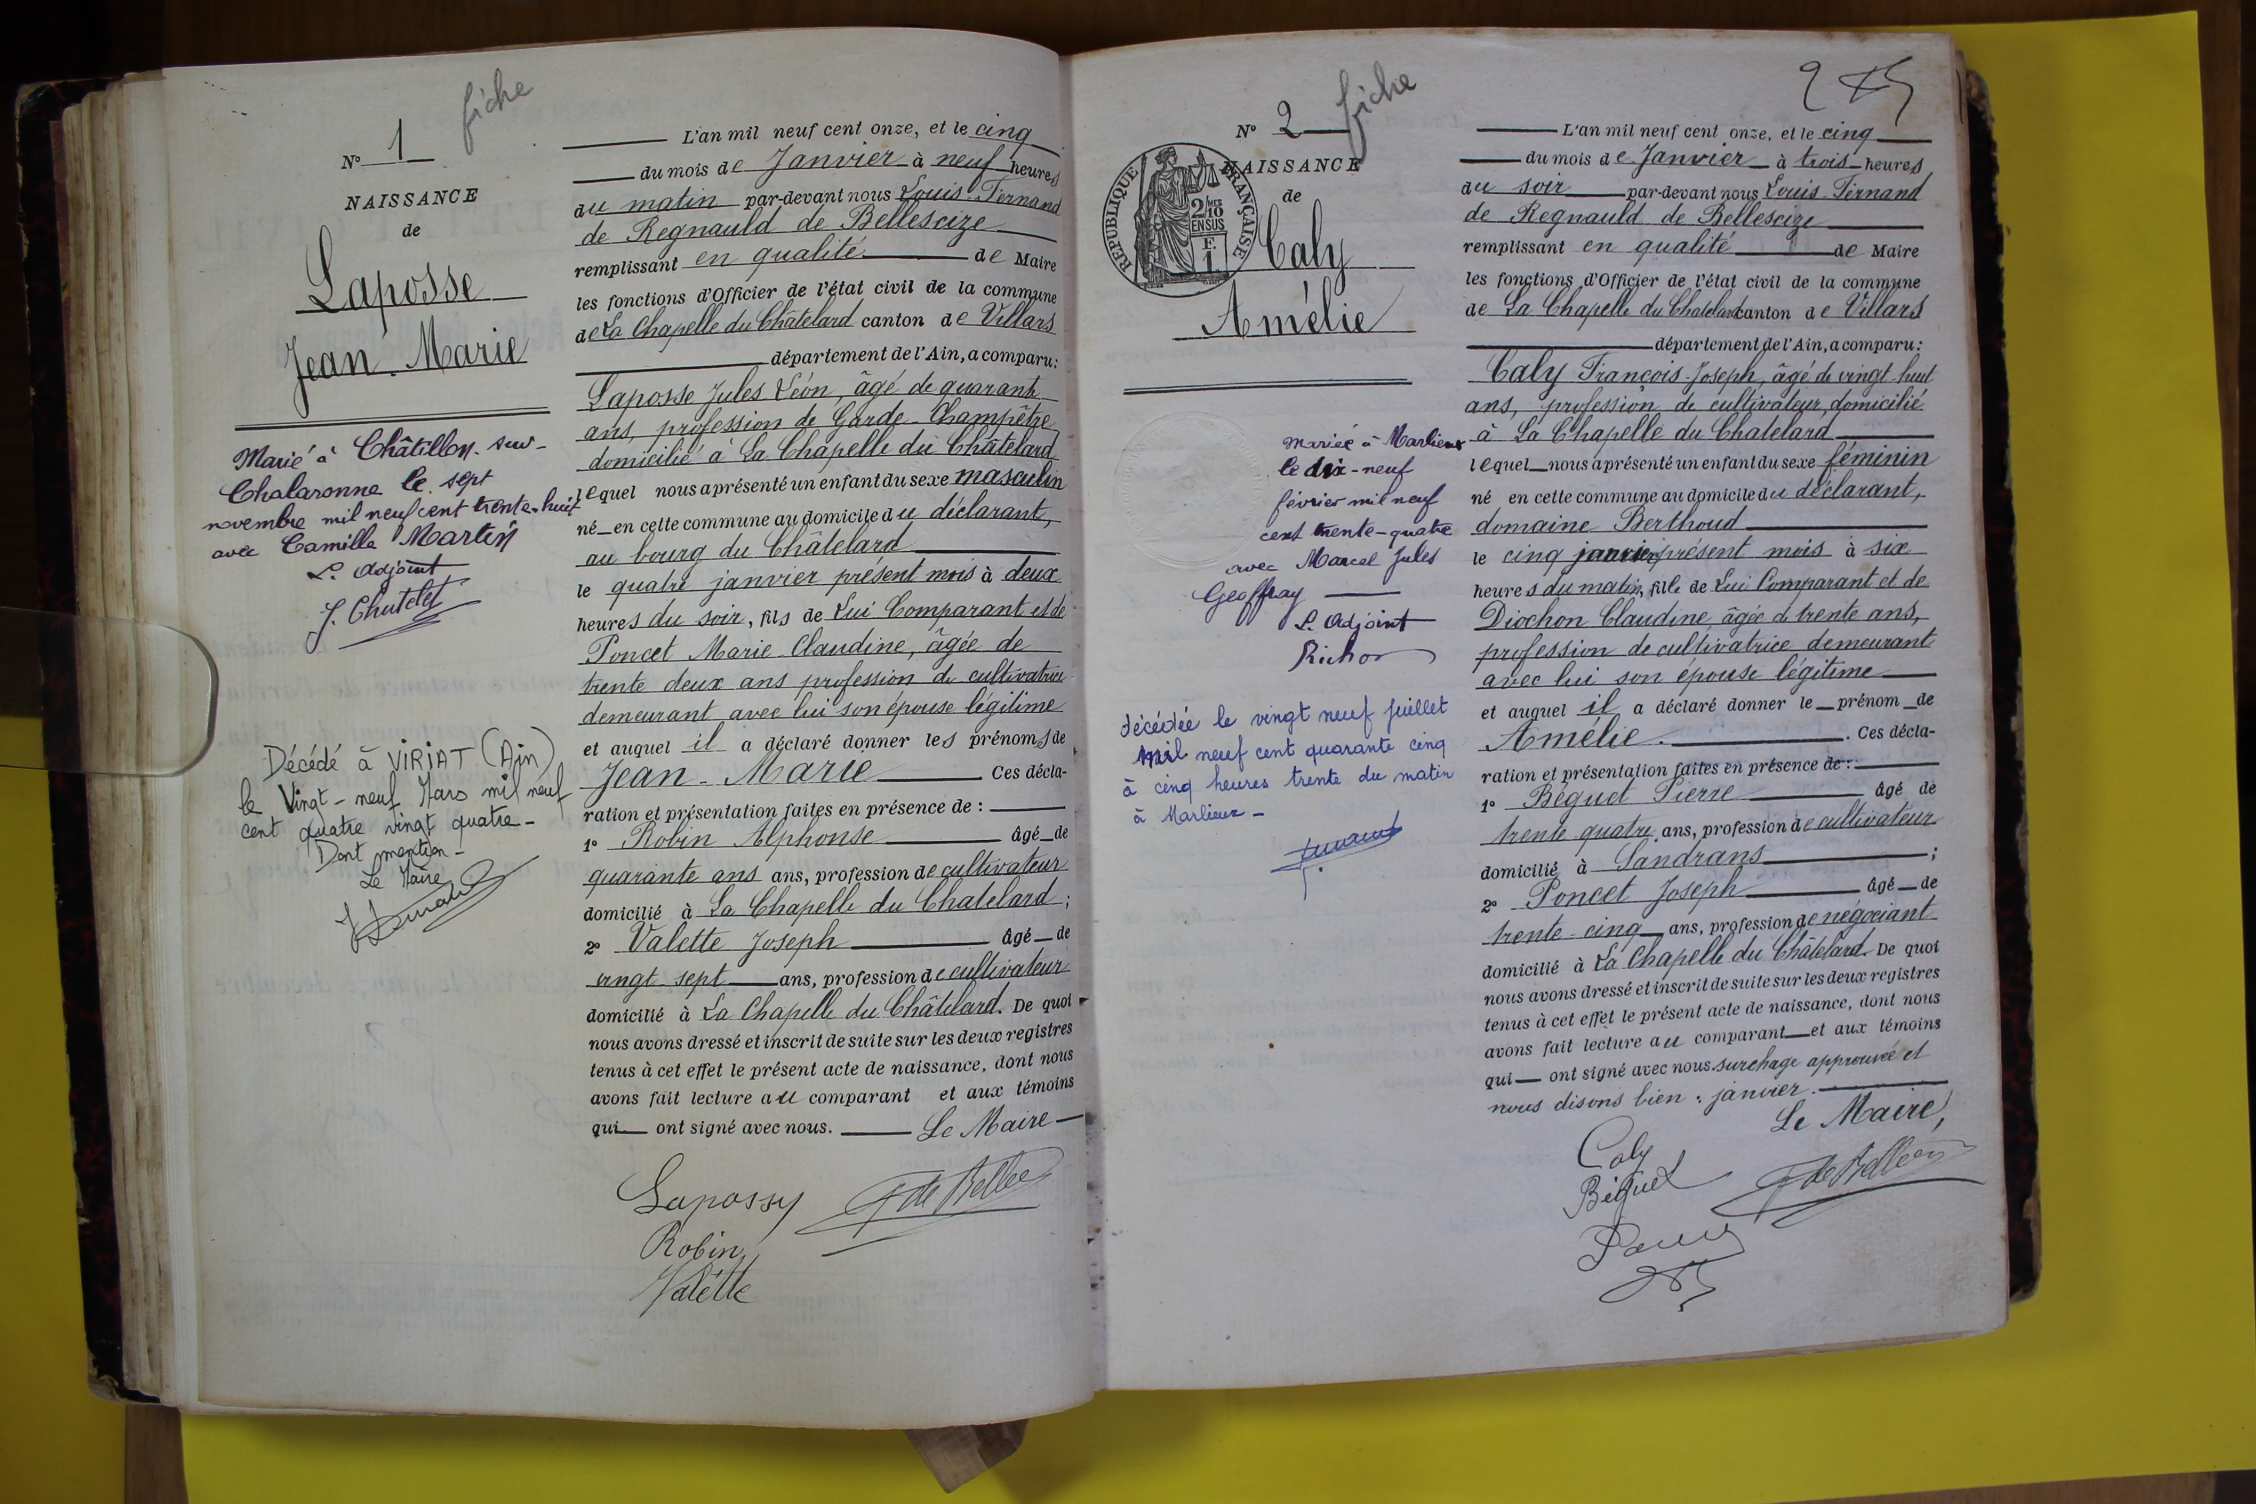 fiche
N° 1
NAISSANCE
de
Laposse
Jean-Marie
Marié à Châtillon-sur-
Chalaronne le sept
novembre mil neuf cent trente-huit
avec Camille Martin
L'Adjoint
J. Chutelet
Décédé à VIRIAT (Ain)
le Vingt-neuf Mars mil neuf
cent quatre vingt quatre-
Dont mention-
Le Maire
L'an mil neuf cent onze, et le cinq
du mois de Janvier à neuf heures
du matin par-devant nous Louis-Fernand
de Regnauld de Bellescize
remplissant en qualité de Maire
les fonctions d'Officier de l'état civil de la commune
de La Chapelle du Châtelard canton de Villars
département de l'Ain, a comparu:
Laposse Jules Léon, âgé de quarante
ans, profession de Garde-Champêtre
domicilié à La Chapelle du Châtelard
lequel nous a présenté un enfant du sexe masculin
né en cette commune au domicile du déclarant,
au bourg du Châtelard
le quatre janvier présent mois à deux
heures du soir, fils de Lui Comparant et de
Poncet Marie-Claudine, âgée de
trente deux ans profession de cultivatrice
demeurant avec lui son épouse légitime
et auquel il a déclaré donner les prénoms de
Jean-Marie Ces décla-
ration et présentation faites en présence de :
1° Robin Alphonse âgé de
quarante ans ans, profession de cultivateur
domicilié à La Chapelle du Chatelard ;
2° Valette Joseph âgé de
vingt sept ans, profession de cultivateur
domicilié à La Chapelle du Châtelard. De quoi
nous avons dressé et inscrit de suite sur les deux registres
tenus à cet effet le présent acte de naissance, dont nous
avons fait lecture au comparant et aux témoins
qui ont signé avec nous. Le Maire
Laposse
F de Bellescize
Robin
Valette
2
fiche
N° 2
NAISSANCE
de
RÉPUBLIQUE FRANÇAISE
2/10 EN SUS
E.
1
Caly
Amélie
Mariée à Marlieux
le dix-neuf
février mil neuf
cent trente-quatre
avec Marcel Jules
Geoffray
L'Adjoint
Richon
décédée le vingt neuf juillet
mil neuf cent quarante cinq
à cinq heures trente du matin
à Marlieux -
L'an mil neuf cent onze, et le cinq
du mois de Janvier à trois heures
du soir par-devant nous Louis-Fernand
de Regnauld de Bellescize
remplissant en qualité de Maire
les fonctions d'Officier de l'état civil de la commune
de La Chapelle du Chatelard canton de Villars
département de l'Ain, a comparu:
Caly François-Joseph, âgé de vingt huit
ans, profession de cultivateur, domicilié
à La Chapelle du Chatelard
lequel nous a présenté un enfant du sexe féminin
né en cette commune au domicile du déclarant,
domaine Berthoud
le cinq janvier présent mois à six
heures du matin, fille de Lui Comparant et de
Diochon Claudine, âgée de trente ans,
profession de cultivatrice demeurant
avec lui son épouse légitime
et auquel il a déclaré donner le prénom de
Amélie. Ces décla-
ration et présentation faites en présence de :
1° Béguet Pierre âgé de
trente quatre ans, profession de cultivateur
domicilié à Sandrans ;
2° Poncet Joseph âgé de
trente-cinq ans, profession de négociant
domicilié à La Chapelle du Châtelard. De quoi
nous avons dressé et inscrit de suite sur les deux registres
tenus à cet effet le présent acte de naissance, dont nous
avons fait lecture au comparant et aux témoins
qui ont signé avec nous. surchage approuvée et
nous disons bien : janvier.
Le Maire,
Caly
F de Bellescize
Béguet